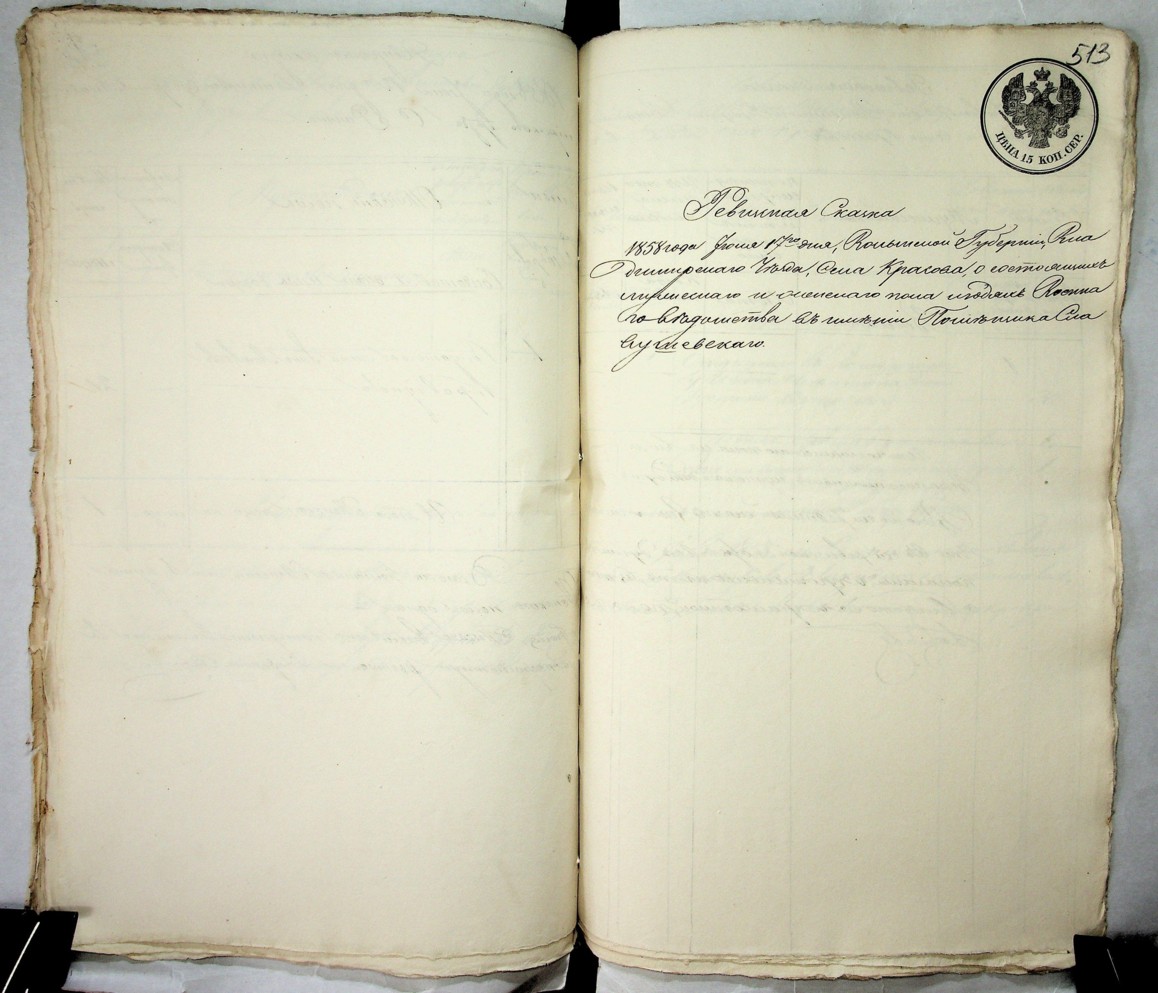 513
ЦѢНА 15 КОП. СЕР.
Ревизская Сказка
1858 года Іюня 17го дня, Волынской Губерніи, Вла
димирскаго Уѣзда, Села Красова, о состоящихъ
мужескаго и женскаго пола людяхъ Военна
го вѣдомства въ имѣніи Помѣщика Сла
вушевскаго.